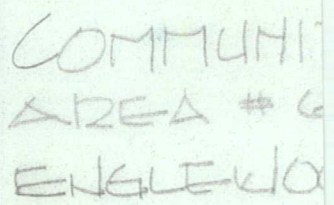 COMMUNI
AREA # 6
ENGLEWO